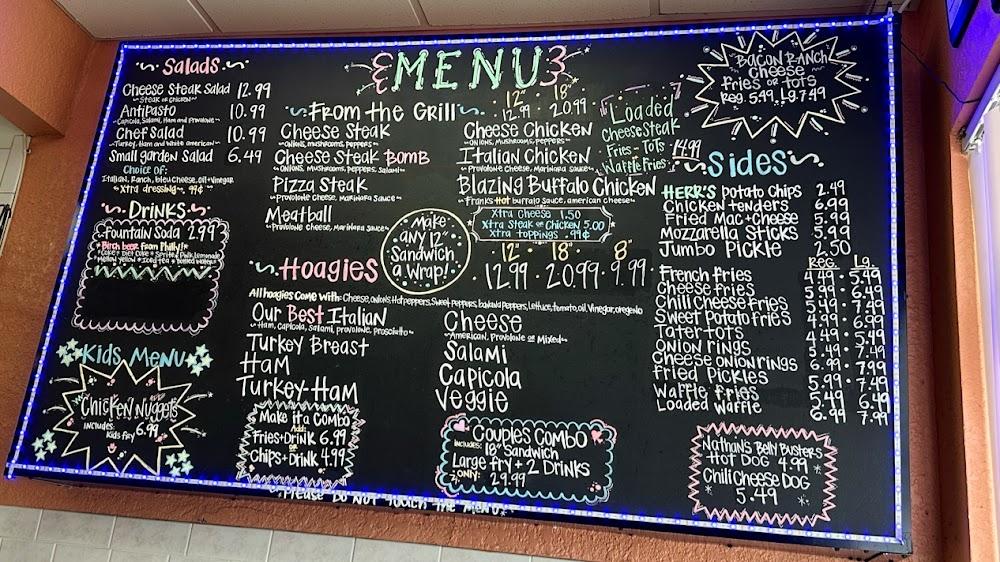 MENU
Salads
Cheese Steak Salad 12.99
~ Steak or Chicken ~
Antipasto 10.99
~ Capicola, Salami, Ham and Provolone ~
Chef Salad 10.99
~ Turkey, Ham and White American ~
Small garden Salad 6.49
Choice of:
Italian, Ranch, bleu cheese, oil + vinegar
~ xtra dressing ~ 99¢ ~
Drinks
Fountain Soda 2.99
* Birch beer from Philly! *
* Coke * Diet Coke * Sprite * Pink Lemonade
Mellow Yellow * Iced tea * Bottled Water *
Kids Menu
Chicken Nuggets
includes: Kids fry 6.99
From the Grill
12" 18"
12.99 20.99
Cheese Steak
~ Onions, Mushrooms, Peppers ~
Cheese Steak Bomb
~ Onions, Mushrooms, Peppers, Salami ~
Pizza Steak
~ Provolone Cheese, Marinara Sauce ~
Meatball
~ Provolone Cheese, Marinara Sauce ~
Cheese Chicken
~ Onions, Mushrooms, Peppers ~
Italian Chicken
~ Provolone Cheese, Marinara Sauce ~
Blazing Buffalo Chicken
~ Franks Hot buffalo sauce, american cheese ~
Make
any 12"
Sandwich
a Wrap!
Xtra Cheese 1.50
Xtra Steak or Chicken 5.00
Xtra toppings .99¢
Hoagies
12" 18" 8"
12.99 20.99 9.99
All hoagies Come with: Cheese, onions, Hot peppers, Sweet peppers, banana peppers, lettuce, tomato, oil, Vinegar, oregano
Our Best Italian
~ Ham, Capicola, Salami, provolone, prosciutto ~
Turkey Breast
Ham
Turkey-Ham
Cheese
~ American, Provolone or Mixed ~
Salami
Capicola
Veggie
Make it a Combo
Add:
Fries + Drink 6.99
or
Chips + Drink 4.99
Couples Combo
includes: 18" Sandwich
Large fry + 2 Drinks
only: 29.99
~ Please Do NOT Touch the Menu ~
Bacon Ranch
Cheese
fries or tots
Reg. 5.99 Lg. 7.49
Loaded
Cheese Steak
Fries - Tots
Waffle Fries 14.99
Sides
HERR'S Potato Chips 2.49
Chicken tenders 6.99
Fried Mac + Cheese 5.99
Mozzarella Sticks 5.99
Jumbo Pickle 2.50
Reg. Lg.
French fries 4.49 · 5.49
Cheese fries 5.99 · 6.49
Chili Cheese fries 5.49 · 7.49
Sweet Potato fries 4.99 · 6.99
Tater-tots 4.49 · 5.49
Onion rings 5.49 · 7.49
Cheese onion rings 6.99 · 7.99
Fried Pickles 5.99 · 7.49
Waffle fries 5.49 · 6.49
Loaded Waffle 6.99 · 7.99
Nathan's Belly Busters
Hot Dog 4.99
Chili Cheese Dog
5.49